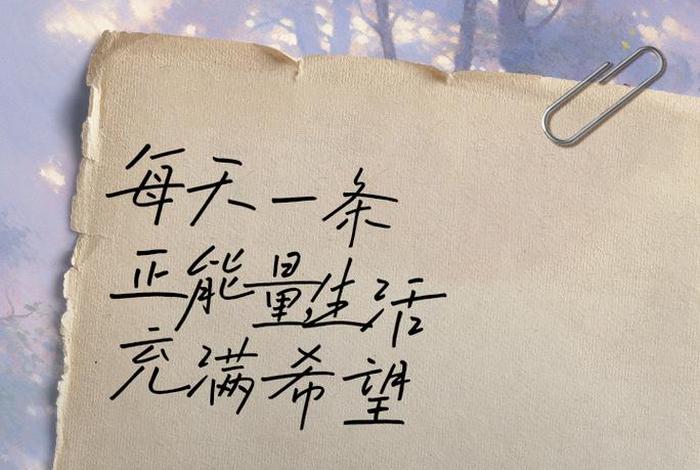 每天一条
正能量生活
充满希望